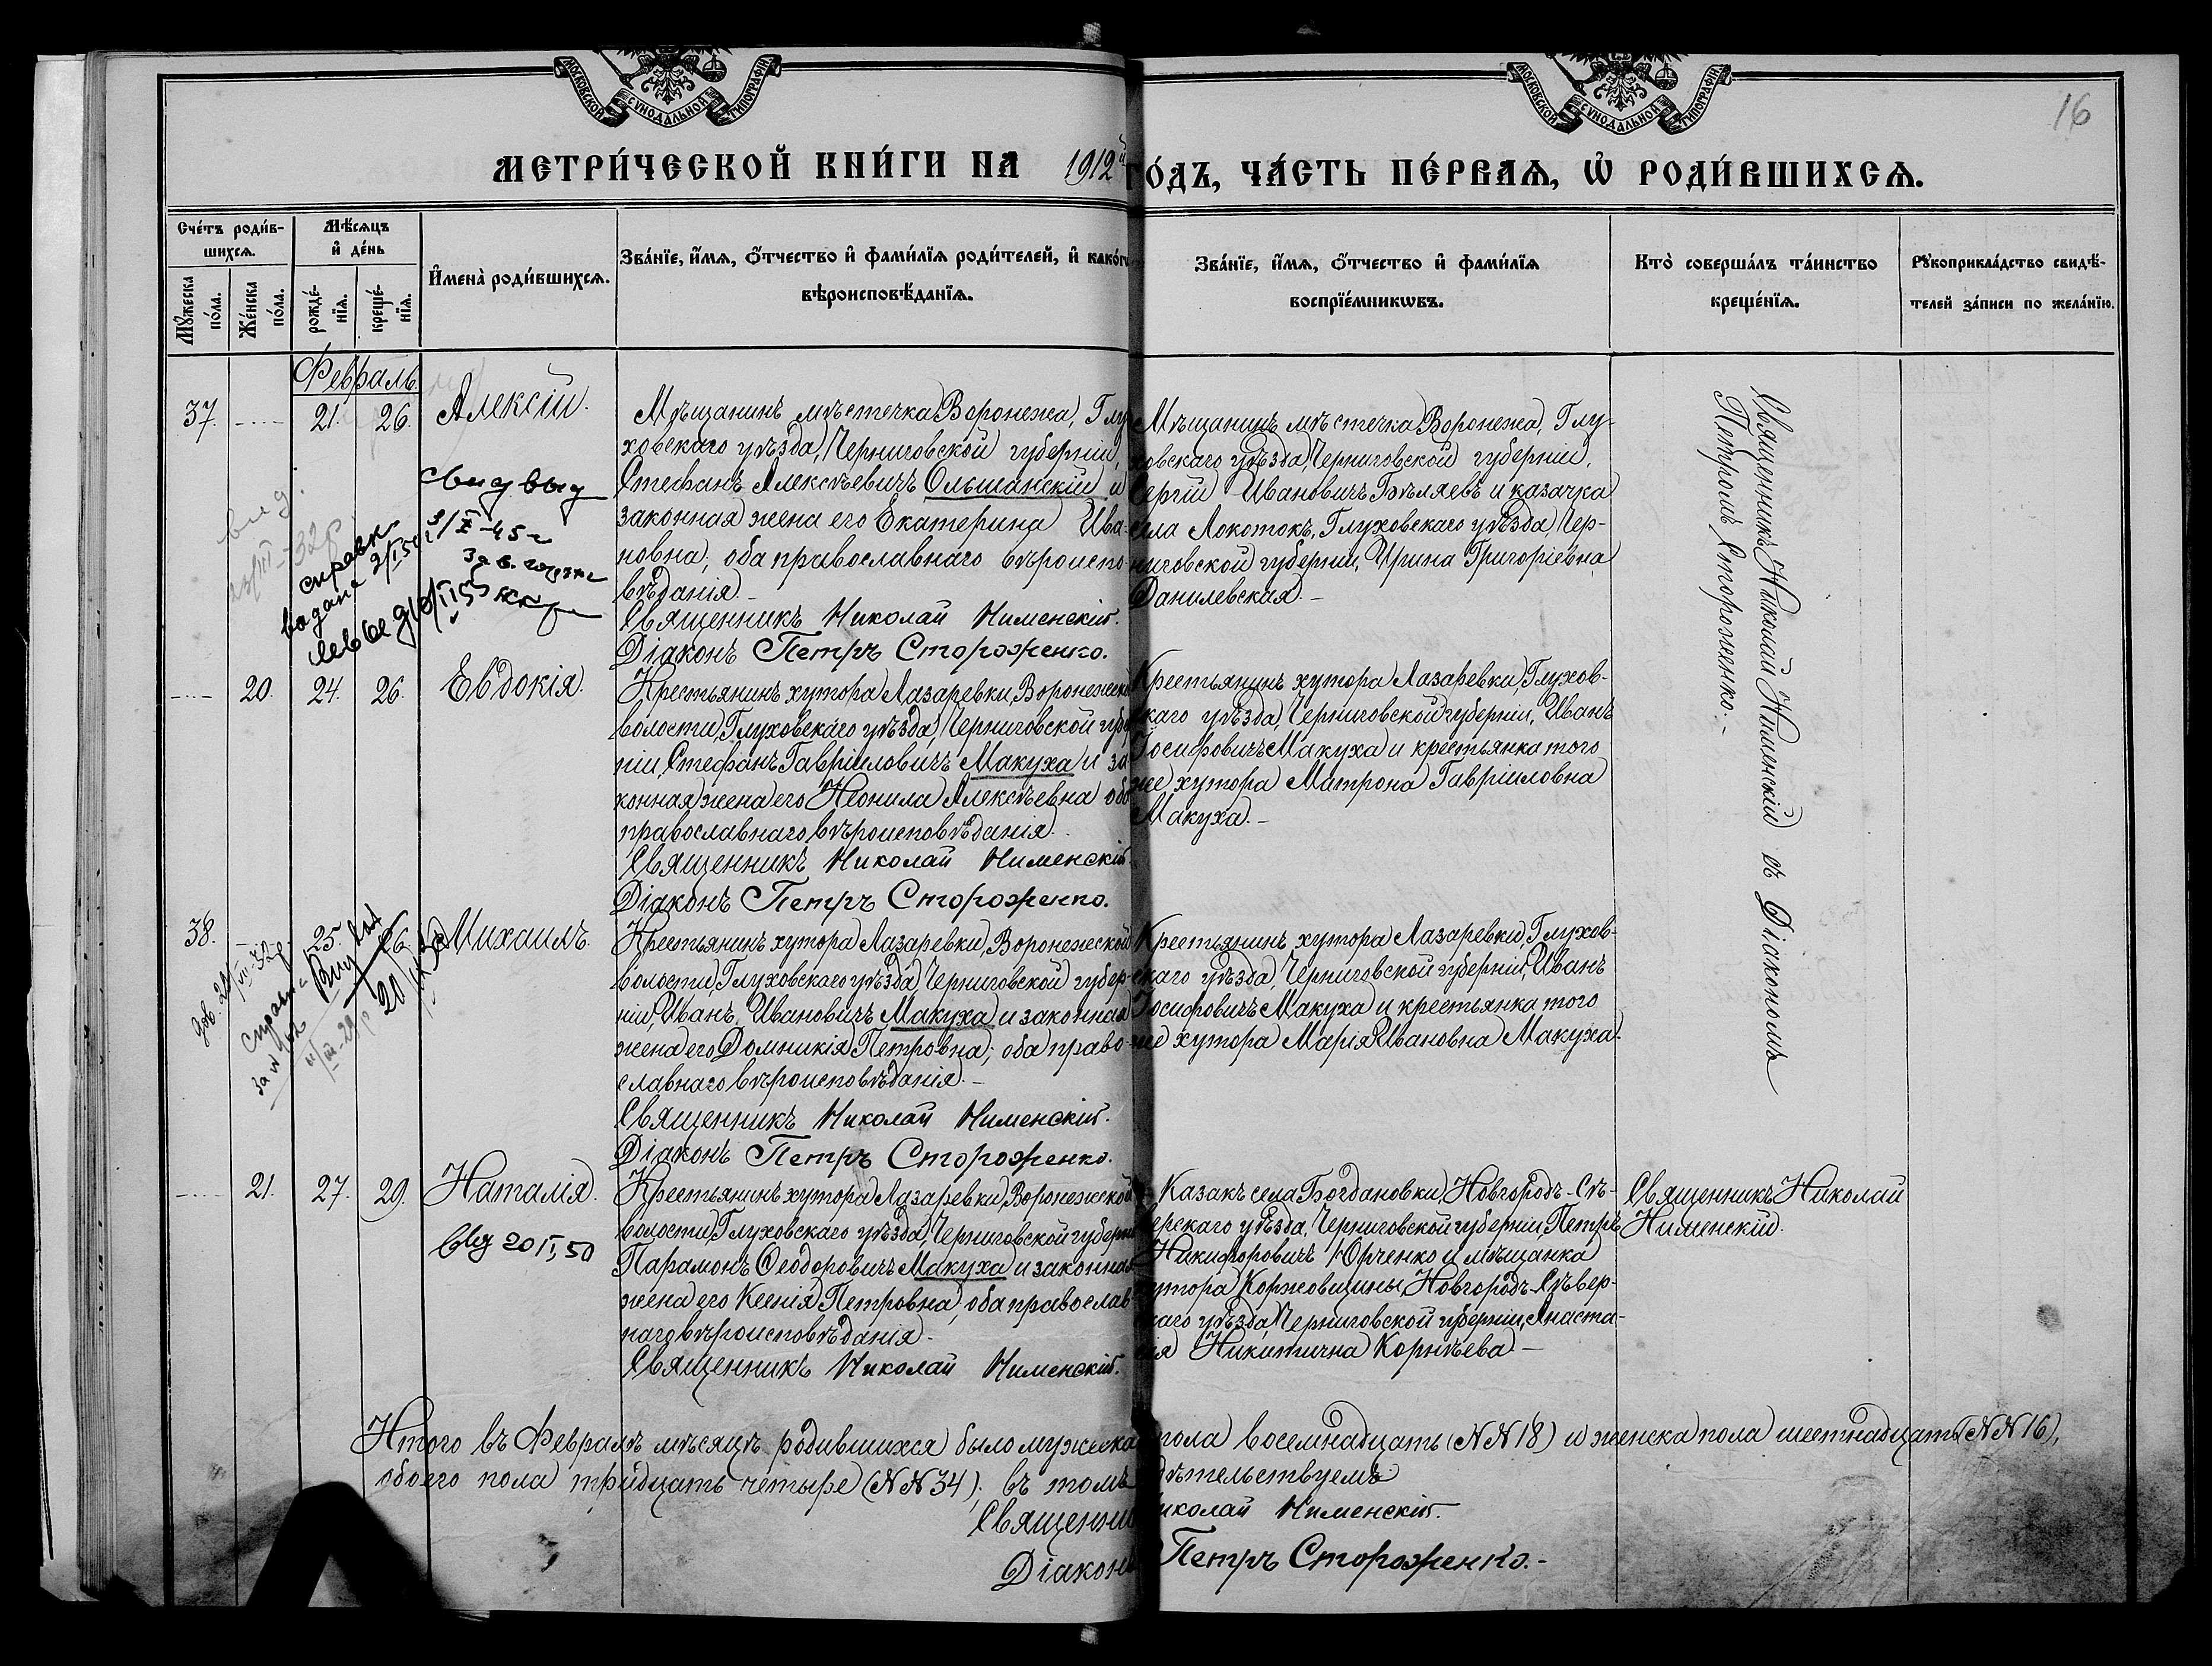 МОСКОВСКОЙ СѴНОДАЛЬНОЙ ТИПОГРАФІИ
МОСКОВСКОЙ СѴНОДАЛЬНОЙ ТИПОГРАФІИ
16
МЕТРИ́ЧЕСКОЙ КНИ́ГИ НА 1912й ГО́ДЪ, ЧА́СТЬ ПЕ́РВАѦ, Ѡ҆ РОДИ́ВШИХСѦ.
Сче́тъ роди́в-
шихсѧ.
Мꙋ́жеска по́ла.
Же́нска по́ла.
Мѣ́сѧцъ
и҆ де́нь
рожде́-
нїѧ.
креще́-
нїѧ.
И҆мена̀ роди́вшихсѧ.
Зва́нїе, и҆́мѧ, ѻ҆́тчество и҆ фами́лїѧ роди́телей, и҆ како́гѡ
вѣроисповѣ́данїѧ.
Зва́нїе, и҆́мѧ, ѻ҆́тчество и҆ фами́лїѧ
воспрїе́мникѡвъ.
Кто̀ соверша́лъ та́инство
креще́нїѧ.
Рꙋкоприкла́дство свидѣ́-
телей за́писи по жела́нїю.
Февраль.
37. 21. 26. Алексій.
Мѣщанинъ мѣстечка Воронежа, Глу-
ховскаго уѣзда, Черниговской губерніи,
Стефанъ Алексѣевичъ Ольшанскій и
законная жена его Екатерина Ива-
новна; оба православнаго вѣроиспо-
вѣданія.-
Священникъ Николай Нименскій.
Діаконъ Петръ Стороженко.
Мѣщанинъ мѣстечка Воронежа, Глу-
ховскаго уѣзда, Черниговской губерніи,
Сергій Ивановичъ Бѣляевъ и казачка
села Локотокъ, Глуховскаго уѣзда, Чер-
ниговской губерніи, Ирина Григоріевна
Данилевская.-
Священникъ Николай Нименскій съ Діакономъ
Петромъ Стороженко.-
справка
20. 24. 26. Евдокія.
Крестьянинъ хутора Лазаревки, Воронежской
волости, Глуховскаго уѣзда, Черниговской губер-
ніи, Стефанъ Гавріиловичъ Макуха и за-
конная жена его Неонила Алексѣевна оба
православнаго вѣроисповѣданія.
Священникъ Николай Нименскій.
Діаконъ Петръ Стороженко.
Крестьянинъ хутора Лазаревки, Глухов-
скаго уѣзда, Черниговской губерніи, Иванъ
Іосифовичъ Макуха и крестьянка того
же хутора Матрона Гавріиловна
Макуха.-
38. 25. 26. Михаилъ.
Крестьянинъ хутора Лазаревки, Воронежской
волости, Глуховскаго уѣзда, Черниговской губер-
ніи, Иванъ Ивановичъ Макуха и законная
жена его Домникія Петровна; оба право-
славнаго вѣроисповѣданія.-
Священникъ Николай Нименскій.
Діаконъ Петръ Стороженко.
Крестьянинъ хутора Лазаревки, Глухов-
скаго уѣзда, Черниговской губерніи, Иванъ
Іосифовичъ Макуха и крестьянка того
же хутора Марія Ивановна Макуха.
21. 27. 29. Наталія.
Крестьянинъ хутора Лазаревки, Воронежской
волости, Глуховскаго уѣзда, Черниговской губерніи
Парамонъ Ѳеодоровичъ Макуха и законная
жена его Ксенія Петровна, оба православ-
наго вѣроисповѣданія.-
Священникъ Николай Нименскій.
Казакъ села Богдановки, Новгородъ-Сѣ-
верскаго уѣзда, Черниговской губерніи, Петръ
Никифоровичъ Юрченко и мѣщанка
хутора Коржовщины, Новгородъ-Сѣвер-
скаго уѣзда, Черниговской губерніи, Анаста-
сія Никитична Корнѣева-
Священникъ Николай
Нименскій.
Итого въ Февралѣ мѣсяцѣ родившихся было мужеска пола восемнадцать (NN 18) и женска пола шестнадцать (NN 16),
обоего пола тридцать четыре (NN 34); въ томъ свидѣтельствуемъ
Священникъ Николай Нименскій.
Діаконъ Петръ Стороженко.-